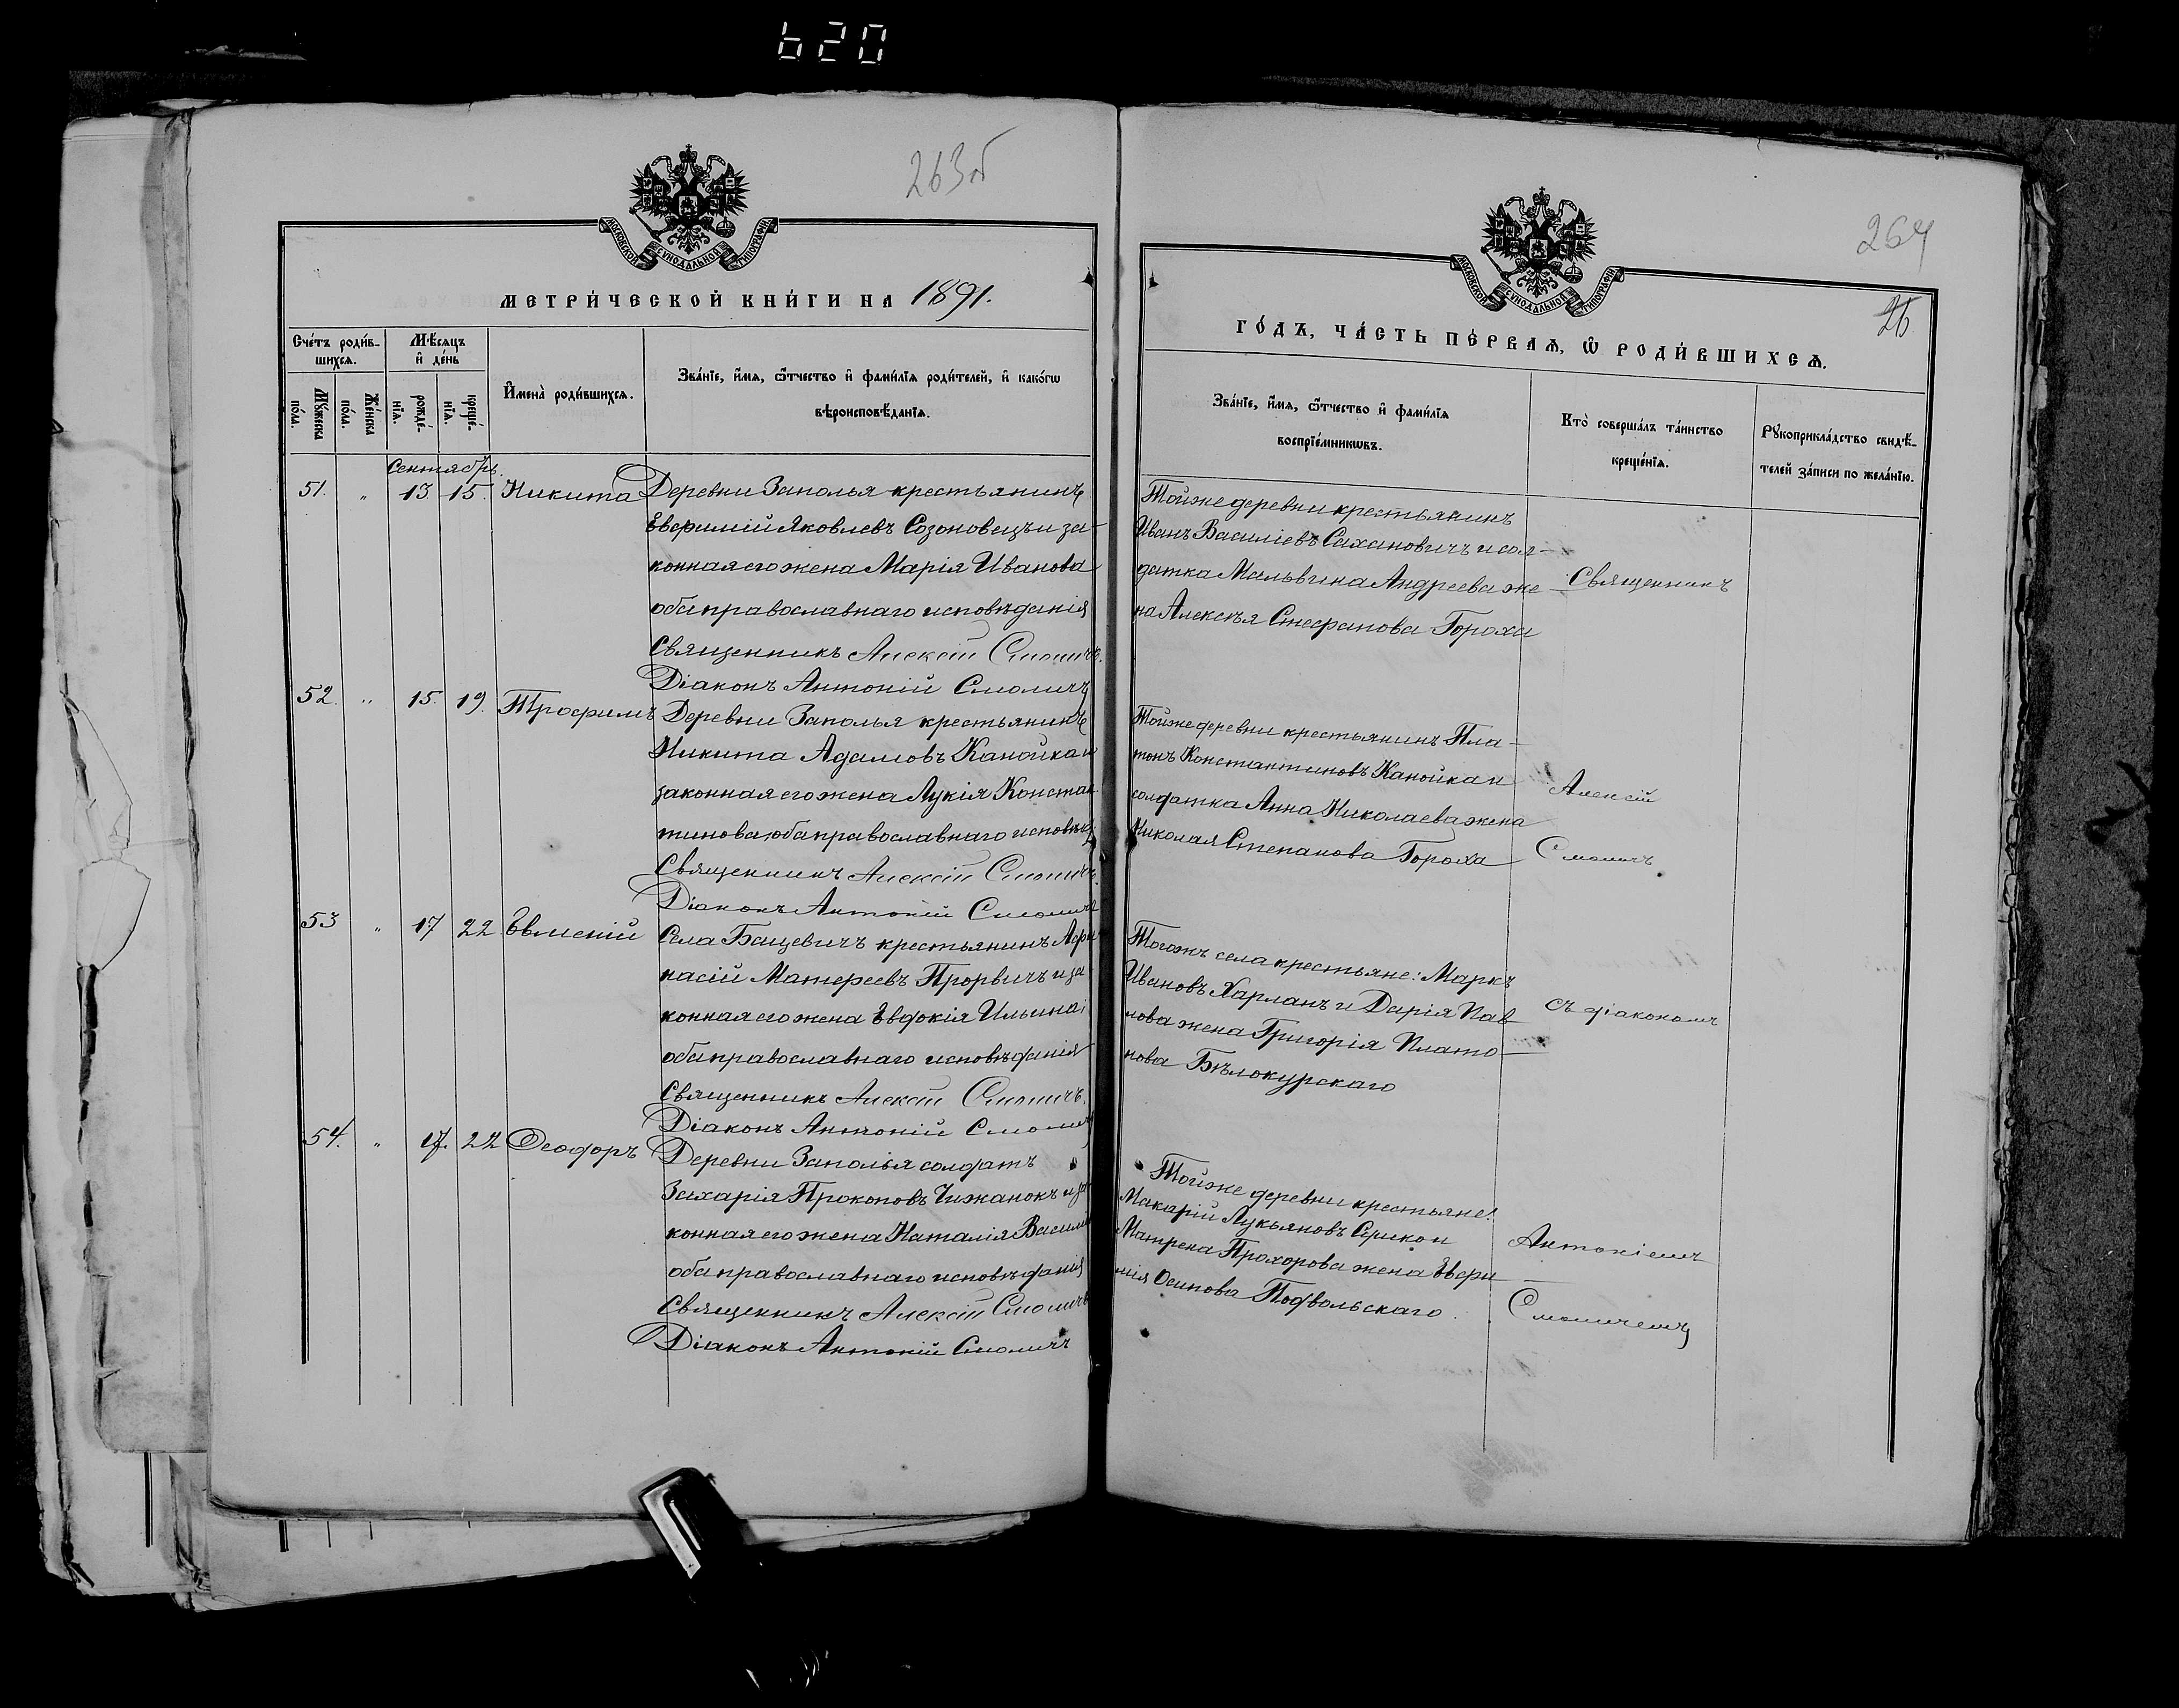 620
263об
МОСКОВСКОЙ СУНОДАЛЬНОЙ ТИПОГРАФІИ
МЕТРИ́ЧЕСКОЙ КНИ́ГИ НА 1891.
Сче́тъ роди́в-
шихсѧ.
Мѣ́сѧцъ
и҆ де́нь
Мꙋ́жеска
по́ла.
Же́нска
по́ла.
рожде́-
нїѧ.
креще́-
нїѧ.
И҆мена̀ роди́вшихсѧ.
Зва́нїе, и҆́мѧ, ѻ҆́тчество и҆ фами́лїѧ роди́телей, и҆ како́гѡ
вѣроисповѣ́данїѧ.
Сентябрь.
51. " 13 15. Никита Деревни Заполья крестьянинъ
Евфимій Яковлевъ Созоновецъ и за-
конная его жена Марія Иванова
оба православнаго исповѣданія
Священникъ Алексій Смоличъ.
Діаконъ Антоній Смоличъ
52. " 15. 19. Трофимъ Деревни Заполья крестьянинъ
Никита Адамовъ Канойка и
законная его жена Лукія Констан-
тинова, оба православнаго исповѣд.
Священникъ Алексій Смоличъ.
Діаконъ Антоній Смоличъ
53 " 17 22 Евменій Села Бацевичъ крестьянинъ Афа-
насій Матфеевъ Прорвичъ и за-
конная его жена Евдокія Ильина;
оба православнаго исповѣданія
Священникъ Алексій Смоличъ.
Діаконъ Антоній Смоличъ
54. " 17. 22 Ѳеодоръ Деревни Заполья солдатъ
Захарія Прокоповъ Чижанокъ и за-
конная его жена Наталія Василье
оба православнаго исповѣданія
Священникъ Алексій Смоличъ
Діаконъ Антоній Смоличъ
264
МОСКОВСКОЙ СУНОДАЛЬНОЙ ТИПОГРАФІИ
26
ГО́ДЪ, ЧА́СТЬ ПЕ́РВАѦ, Ѡ҆ РОДИ́ВШИХСѦ.
Зва́нїе, и҆́мѧ, ѻ҆́тчество и҆ фами́лїѧ
воспрїе́мникѡвъ.
Кто̀ соверша́лъ та́инство
креще́нїѧ.
Рꙋкоприкла́дство свидѣ́-
телей за́писи по жела́нїю.
Той же деревни крестьянинъ
Иванъ Василіевъ Сахановичъ и сол-
датка Мальвина Андреева же-
на Алексѣя Стефанова Гороха
Той же деревни крестьянинъ Пла-
тонъ Константиновъ Канойка и
солдатка Анна Николаева жена
Николая Степанова Гороха
Того жъ села крестьяне: Маркъ
Ивановъ Харланъ и Дарія Пав-
лова жена Григорія Плато-
нова Бѣлокурскаго
Той же деревни крестьяне:
Макарій Лукьяновъ и
Матрена Прохорова жена Евфи-
мія Осипова Подвольскаго.
Священникъ
Алексій
Смоличъ
съ діакономъ
Антоніемъ
Смоличемъ